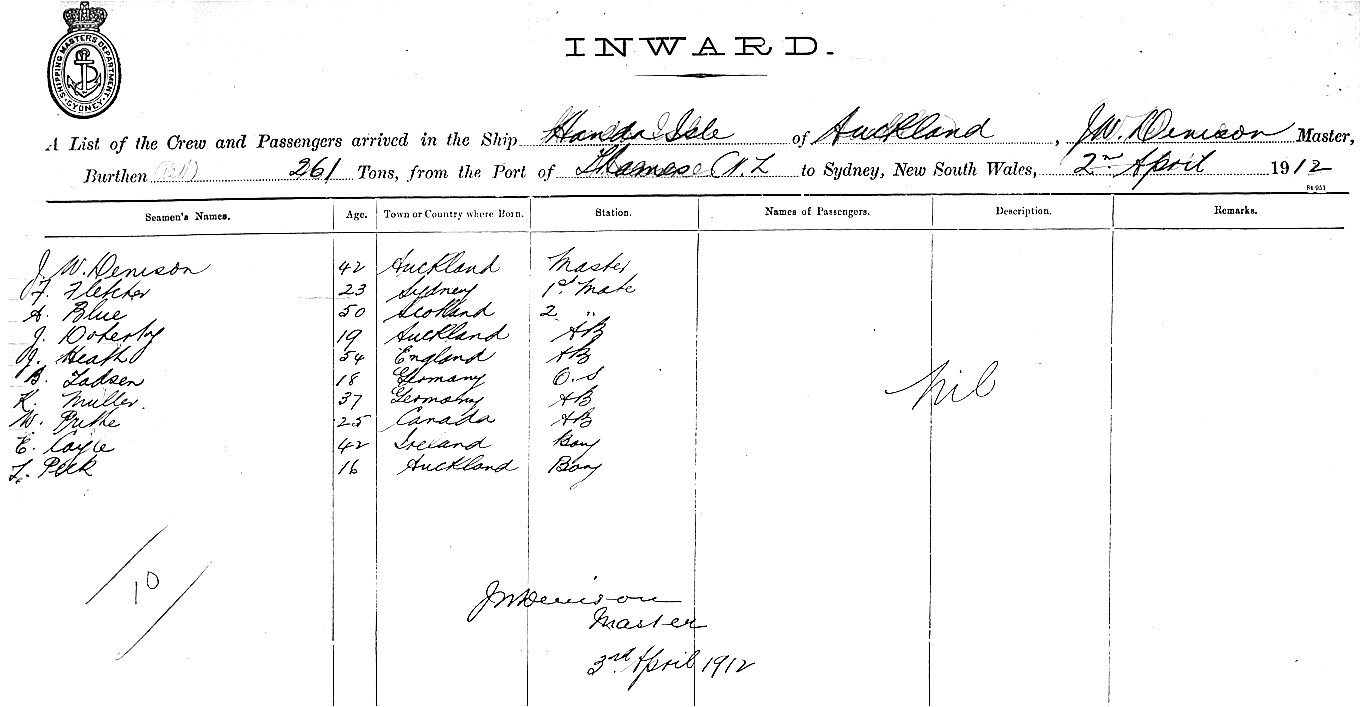 SHIPPING MASTERS DEPARTMENT. SYDNEY
INWARD.
A List of the Crew and Passengers arrived in the Ship Isle of Auckland, J.W. Denison Master,
Burthen 261 Tons, from the Port of Thames N.Z to Sydney, New South Wales, 2nd April 1912
St 951
Seamen's Names. Age. Town or Country where Born. Station. Names of Passengers. Description. Remarks.
J. W. Denison 42 Auckland Master
F. Fletcher 23 Sydney 1st Mate
A. Blue 50 Scotland 2 "
J. Doherty 19 Auckland AB
J. Heath 54 England AB
B. Tadsen 18 Germany O.S
K. Muller. 37 Germany AB
nil
W. 25 Canada AB
E. Coyle 42 Ireland
L. Peek 16 Auckland Boy
10
JW Denison
Master
3rd April 1912